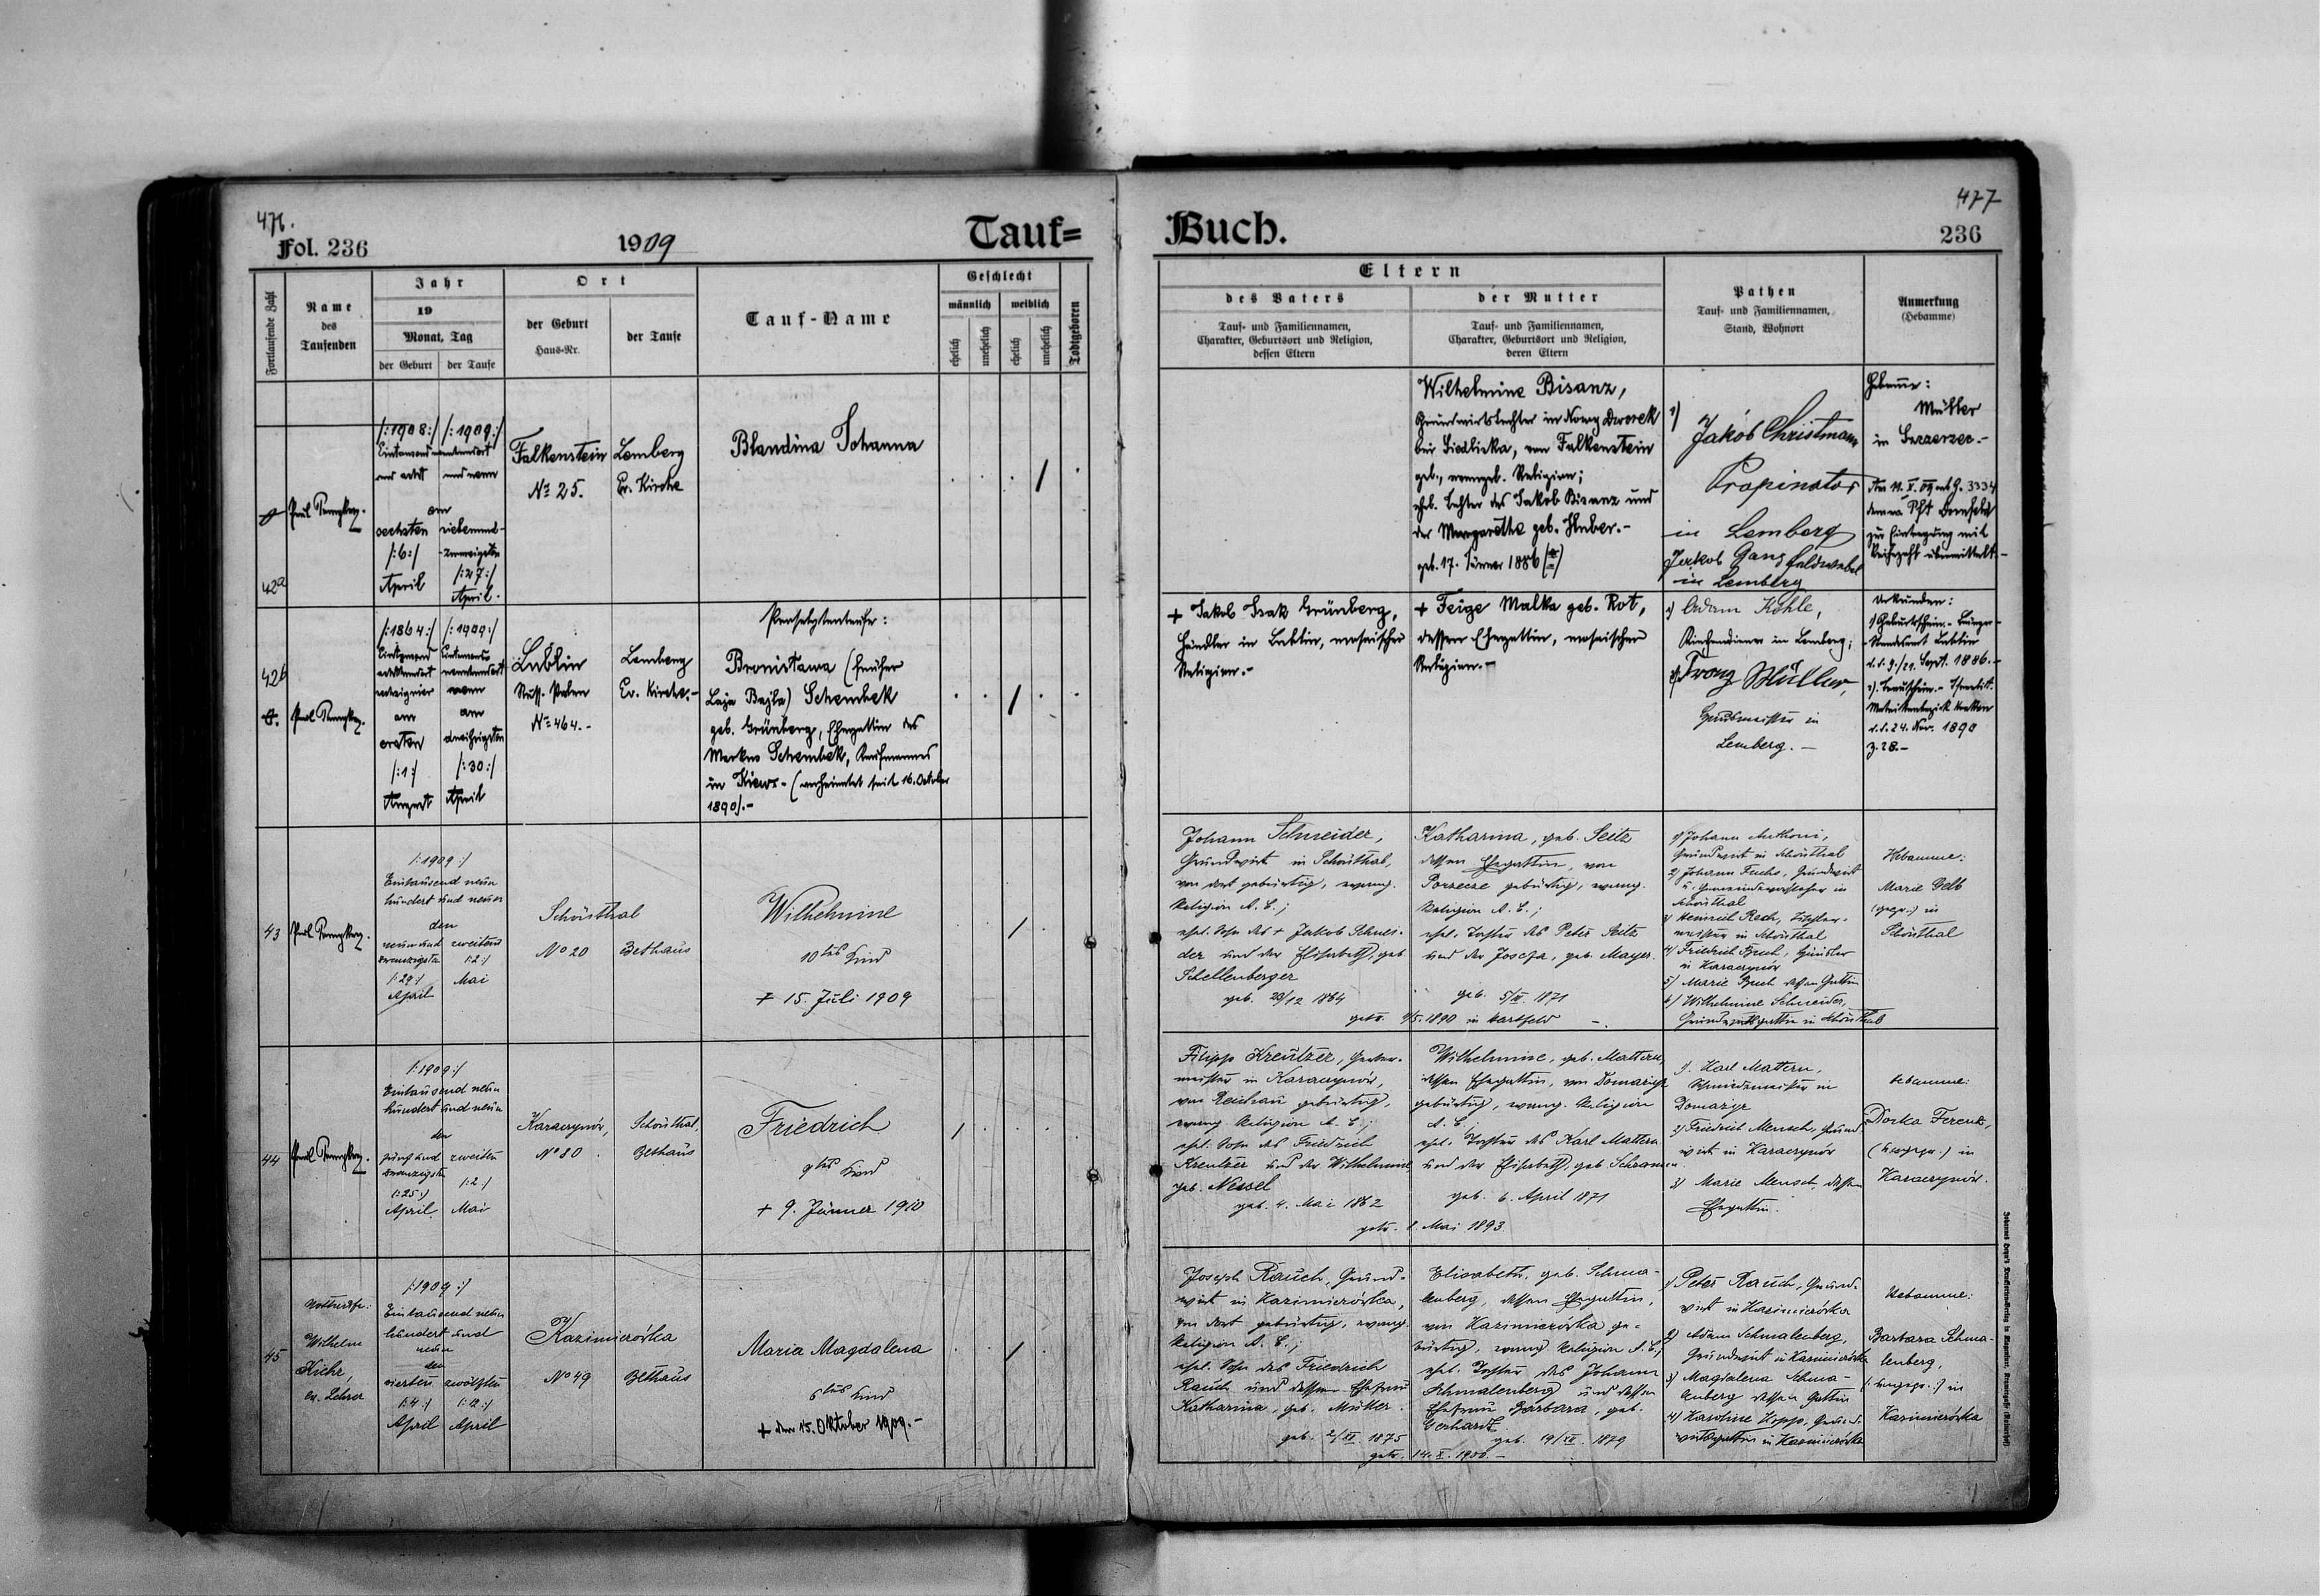 476.
Fol. 236
1909
Tauf=
Fortlaufende Zahl
Name
des
Taufenden
Jahr
19
Monat, Tag
der Geburt
der Taufe
Ort
der Geburt
Haus-Nr.
der Taufe
Tauf-Name
Geschlecht
männlich
weiblich
ehelich
unehelich
ehelich
unehelich
Todtgeboren
477
Buch.
236
Eltern
des Vaters
Tauf- und Familiennamen,
Charakter, Geburtsort und Religion,
dessen Eltern
der Mutter
Tauf- und Familiennamen,
Charakter, Geburtsort und Religion,
deren Eltern
Pathen
Tauf- und Familiennamen,
Stand, Wohnort
Anmerkung
(Hebamme)
42a
/:1908:/
und acht
am
sechsten
/:6:/
April
/:1909:/
und neun
siebenund-
zwanzigsten
/:27:/
April.
Falkenstein
No 25.
Lemberg
Ev. Kirche
Blandina Johanna
Wilhelmine Bisanz,
Grundwirtstochter in Nowy Dworek
bei Siedliska, von Falkenstein
geb., evangel. Religion;
ehel. Tochter des Jakob Bisanz und
der Margaretha geb. Huber.-
geb. 17. Jänner 1886
1)
Jakob Christmann
Propinator
in Lemberg
Jakob Gang Feldwebel
in Lemberg
Hebamme:
Müller
in
zur Eintragung mit
übermittelt.-
42b
/:1864:/
am
ersten
/:1:/
August
/:1909:/
neun
am
dreißigsten
/:30:/
April
Lublin
Russ. Polen
No 464.-
Lemberg
Ev. Kirche.-
Proselytentaufe:
Bronisława (früher
Laja Bajla) Schembek
geb. Grünberg, Ehegattin des
Markus Schembek, Kaufmannes
in Kiew.- (verheiratet seit 16. Oktober
1890).-
+ Jakob Isak Grünberg,
Händler in Lublin, mosaischer
Religion.-
+ Feige Malka geb. Rot,
dessen Ehegattin, mosaischer
Religion.-
1) Adam Köhle,
Kirchendiener in Lemberg;
2) Franz Müller,
in
Lemberg.-
Urkunden:
1) Geburtschein.-
Standesamt Lublin
d.d. 9./21. Sept. 1886.-
2) Trauschein.-
d.d. 24. Nov. 1890
Z. 28.-
43
/:1909:/
Eintausend neun
hundert und neun
den
neunund
zwanzigsten
/:29:/
April
zweiten
/:2:/
Mai
Schönthal
No 20
Bethaus
Wilhelmine
10tes Kind
+ 15. Juli 1909
Johann Schneider,
Grundwirt in Schönthal,
von dort gebürtig, evang.
Religion A. C.;
ehel. Sohn des + Jakob Schnei-
der und der Elisabeth, geb.
Schellenberger
geb. 23/12 1864
Katharina, geb. Seitz
dessen Ehegattin, von
Porzecze gebürtig, evang.
Religion A. C.;
ehel. Tochter des Peter Seitz
und der Josefa, geb. Mayer.
geb. 5/XI. 1871
getr. 9/5. 1890 in Hartfeld -.
1) Johann Anthoni,
Grundwirt in Schönthal
2) Johann Fuchs, Grundwirt
u. Gemeindevorsteher in
Schönthal
3) Heinrich Rech, Tischler-
meister in Schönthal
4) Friedrich Buch,
in Karaczynów
5) Marie Buch dessen Gattin
6) Wilhelmine Schneider,
Grundwirtsgattin in Schönthal
Hebamme:
Marie Gelb
(gepr.) in
Schönthal
44
/:1909:/
Eintausend neun
hundert und neun
den
fünf und
zwanzigsten
/:25:/
April
zweiten
/:2:/
Mai
Karaczynów,
No 80
Schönthal,
Bethaus
Friedrich
9tes Kind
+ 9. Jänner 1910
Filipp Kreutzer,
meister in Karaczynów,
von Reichau gebürtig,
evang. Religion A. C.;
ehel. Sohn des Friedrich
Kreutzer und der Wilhelmine,
geb. Nessel
geb. 4. Mai 1862
Wilhelmine, geb. Mattern,
dessen Ehegattin, von Domazyr
gebürtig, evang. Religion
A. C.
ehel. Tochter des Karl Mattern
und der Elisabeth, geb. Schramm.
geb. 6. April 1871
getr. 1. Mai 1893.
1. Karl Mattern,
Schmiedemeister in
Domazyr
2) Friedrich Mensch, Grund
wirt in Karaczynów
3) Marie Mensch, dessen
Ehegattin.
Hebamme:
Dorka Ferenz,
(ungepr.) in
Karaczynów.
45
Nottaufe:
Wilhelm
Kiehr,
ev. Lehrer
/:1909:/
Eintausend neun
hundert und
neun
den
vierten
/:4:/
April
zwölften
/:12:/
April
Kazimierówka
No 49
Bethaus
Maria Magdalena
5tes Kind
+ den 15. Oktober 1909.-
Joseph Rauch, Grund-
wirt in Kazimierówka,
von dort gebürtig, evang.
Religion A. C.;
ehel. Sohn des Friedrich
Rauch und dessen Ehefrau
Katharina, geb. Müller.
geb. 2/XI. 1875
Elisabeth, geb. Schma-
lenberg, dessen Ehegattin,
von Kazimierówka ge-
bürtig, evang. Religion A. C.,
ehel. Tochter des Johann
Schmalenberg und dessen
Ehefrau Barbara, geb.
Gerhardt
geb. 19/XII. 1879
getr. 14. X. 1900.-
1) Peter Rauch, Grund-
wirt in Kazimierówka
2) Adam Schmalenberg,
Grundwirt in Kazimierówka
3) Magdalena Schma-
lenberg dessen Gattin
4) Karoline Hopp, Grund-
wirtsgattin in Kazimierówka
Hebamme:
Barbara Schma-
lenberg,
(:ungepr.:) in
Kazimierówka